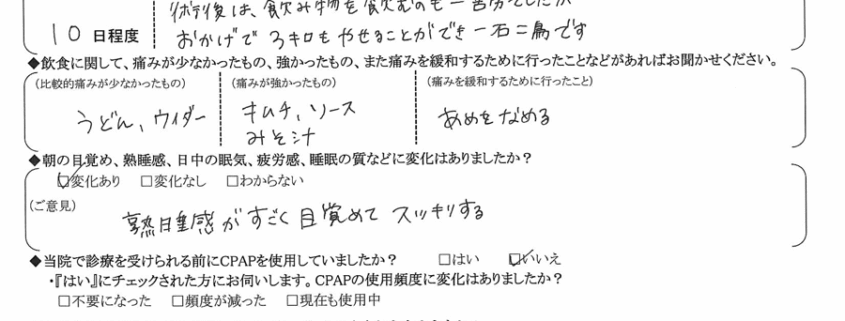 術後は、飲み物を飲むのも一苦労でしたが
10日程度
おかげで 3キロもやせることができ一石二鳥です
◆飲食に関して、痛みが少なかったもの、強かったもの、また痛みを緩和するために行ったことなどがあればお聞かせください。
(比較的痛みが少なかったもの) (痛みが強かったもの) (痛みを緩和するために行ったこと)
うどん、ウィダー キムチ、ソース あめをなめる
みそ汁
◆朝の目覚め、熟睡感、日中の眠気、疲労感、睡眠の質などに変化はありましたか?
☑変化あり □変化なし □わからない
(ご意見)
熟睡感がすごく目覚めて スッキリする
◆当院で診療を受けられる前にCPAPを使用していましたか? □はい ☑いいえ
・『はい』にチェックされた方にお伺いします。CPAPの使用頻度に変化はありましたか?
□不要になった □頻度が減った □現在も使用中